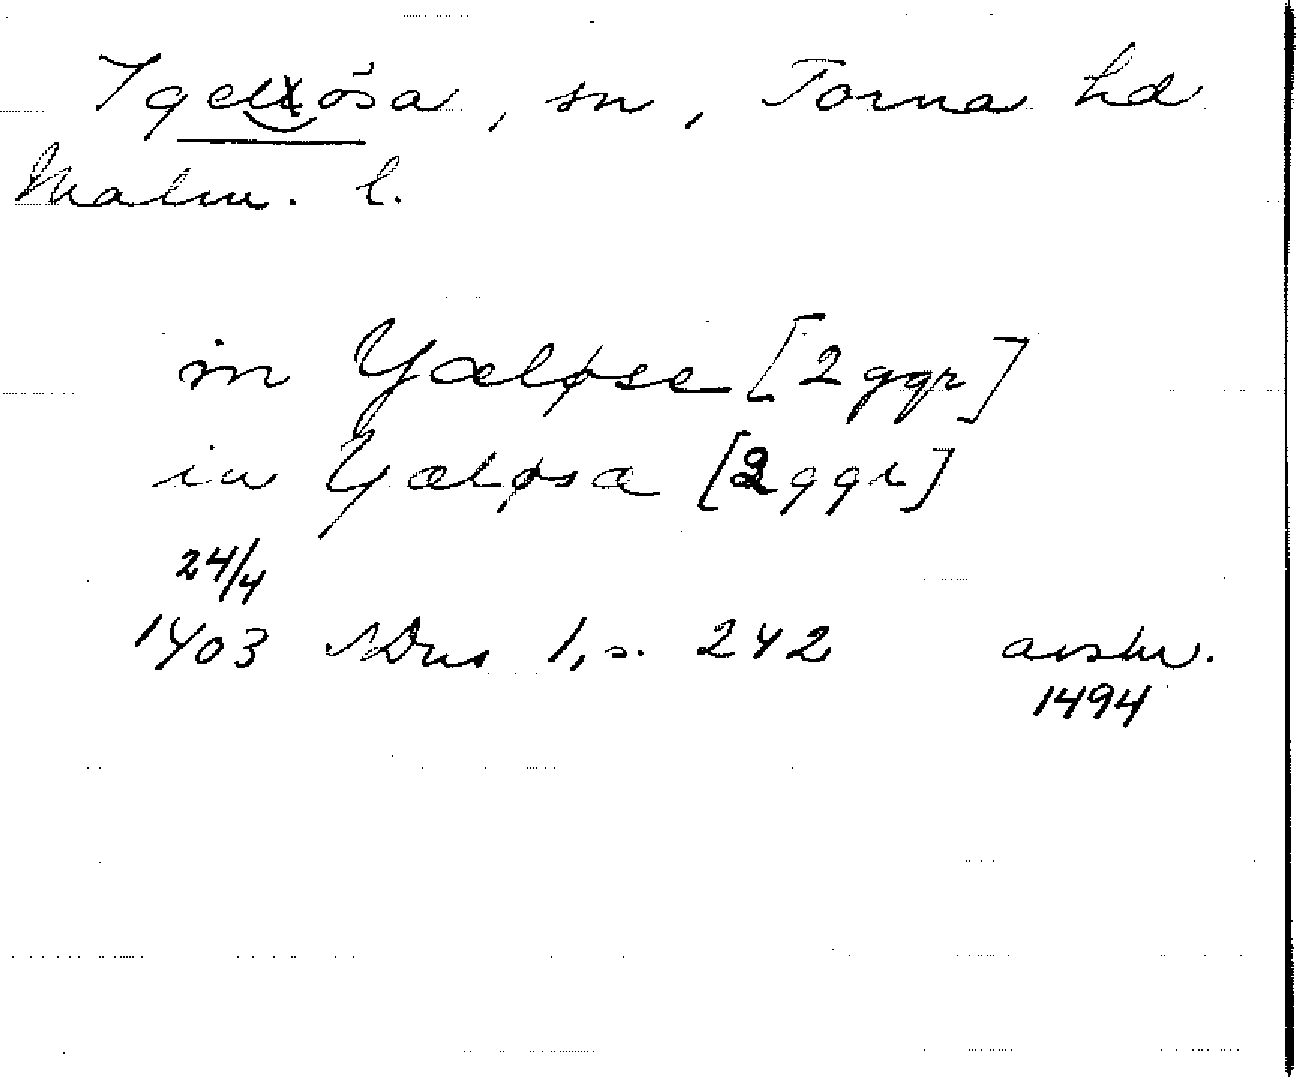 Igelösa, sn, Torna hd
Malm. l.
in Yæløse [2 ggr]
in Yæløsa [2 ggr]
24/4
1403 ÆDus 1, s. 242 avskr.
1494